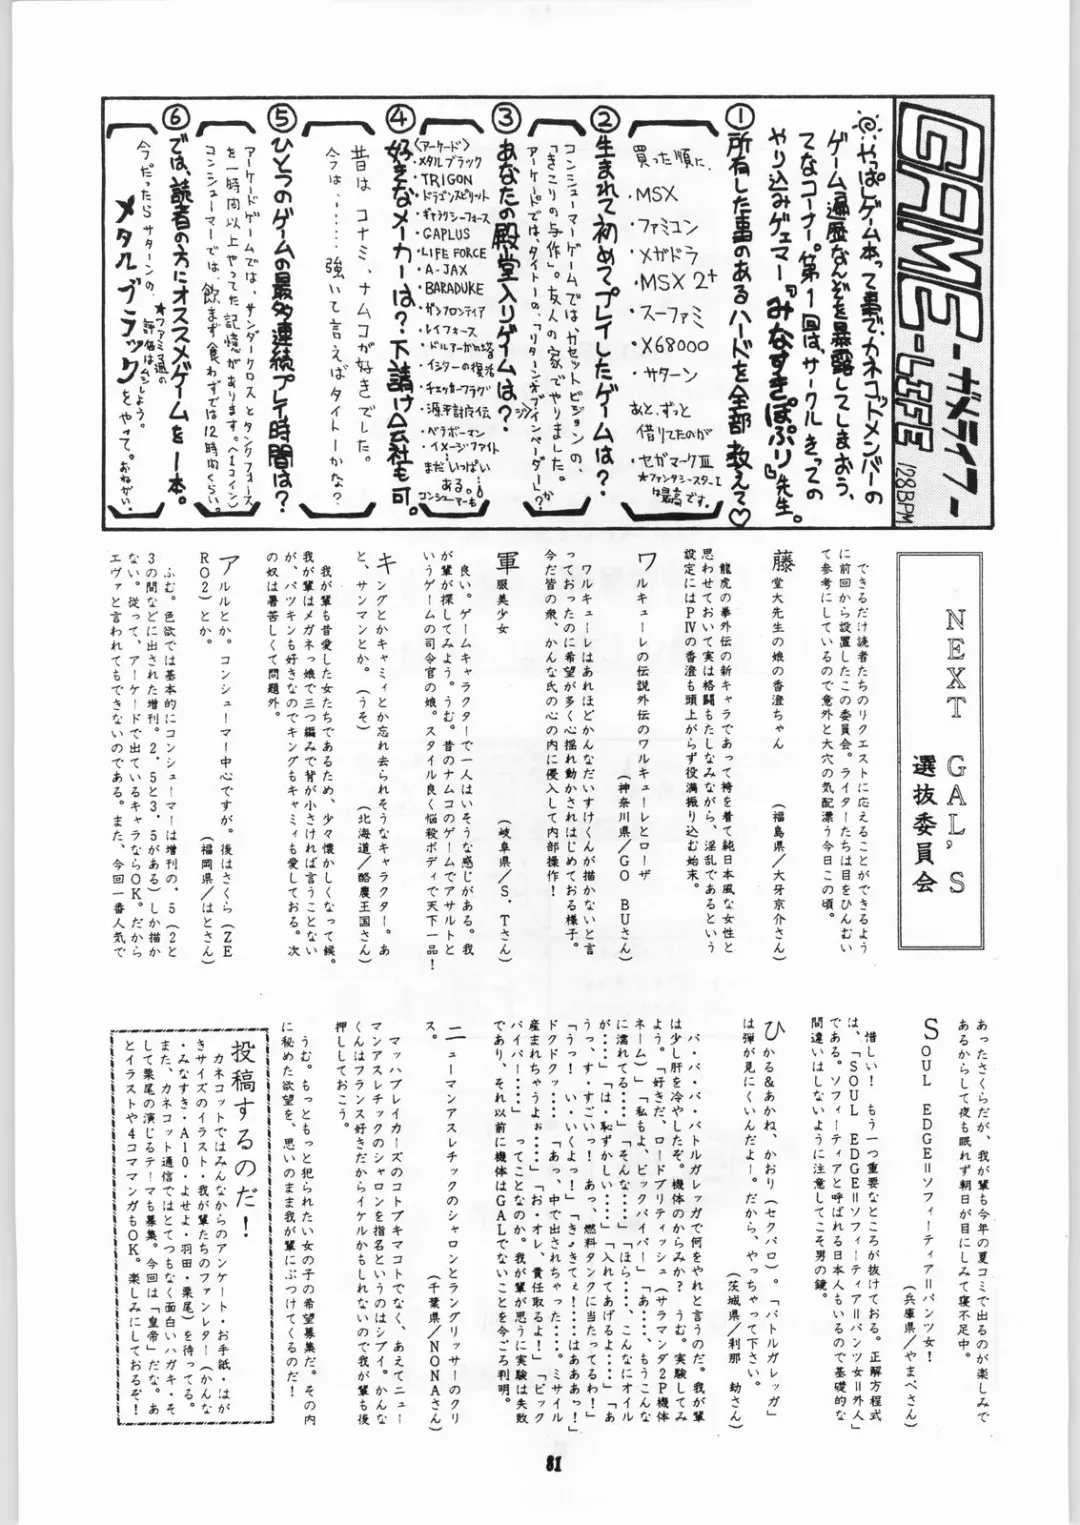 GAME-ガメライフー
GAME-LIFE 128BPM
やっぱしゲーム本って事で、カネコットメンバーの
ゲーム遍歴なんぞを暴露してしまおう、
てなコーナー。第1回は、サークルきっての
やり込みゲェマー『みなすきぽぷり』先生。
①所有した事のあるハードを全部教えて♡
買った順に、
・MSX
・ファミコン
・メガドラ
・MSX2+
・スーファミ
・X68000
・サターン
あと、ずっと
借りてたのが
セガマークⅢ
★ファンタシースターⅠ
は最高です。
②生まれて初めてプレイしたゲームは？
コンシューマーゲームでは、カセットビジョンの、
「きこりの与作」。友人の家でやりました。
アーケードでは、タイトーの、「リターンオブインベーダー」？か
③あなたの殿堂入りゲームは？
〈アーケード〉
・メタルブラック
・TRIGON
・ドラゴンスピリット
・ギャラクシーフォース
・GAPLUS
・LIFE FORCE
・A-JAX
・BARADUKE
・ガンフロンティア
・レイフォース
・ドルアーガの塔
・イシターの復活
・チェッカーフラグ
・源平討魔伝
・ベラボーマン
・イメージファイト
まだいっぱい
ある。
コンシューマーも
④好きなメーカーは？下請け会社も可。
昔は、コナミ、ナムコが好きでした。
今は、……強いて言えばタイトーかな？
⑤ひとつのゲームの最多連続プレイ時間は？
アーケードゲームでは、サンダークロスとタンクフォース
を一時間以上やってた記憶があります。（1コイン）
コンシューマーでは、飲まず食わずでは12時間くらい。
⑥では、読者の方にオススメゲームを一本。
今、だったらサターンの、
★ファミマ通の
評価はムシしよう。
メタルブラックをやって。おねがい。
NEXT GAL'S
選抜委員会
できるだけ読者たちのリクエストに応えることができるよう
に前回から設置したこの委員会。ライターたちは目をひんむい
て参考にしているので意外と大穴の気配漂う今日この頃。
藤堂大先生の娘の香澄ちゃん
（福島県／大牙京介さん）
龍虎の拳外伝の新キャラであって袴を着て純日本風な女性と
思わせておいて実は格闘もたしなみながら、淫乱であるという
設定にはPⅣの香澄も頭上がらず役満振り込む始末。
ワルキューレの伝説外伝のワルキューレとローザ
（神奈川県／GO BUさん）
ワルキューレはあれほどかんなだいすけくんが描かないと言
っておったのに希望が多く心揺れ動かされはじめておる様子。
今だ皆の衆、かんな氏の心の内に侵入して内部操作！
軍服美少女
（岐阜県／S、Tさん）
良い。ゲームキャラクターで一人はいそうな感じがある。我
が輩が探してみよう。うむ。昔のナムコのゲームでアサルトと
いうゲームの司令官の娘。スタイル良く悩殺ボディで天下一品！
キングとかキャミィとか忘れ去られそうなキャラクター。あ
と、サンマンとか。（うそ）
（北海道／酪農王国さん）
我が輩も昔愛した女たちであるため、少々懐かしくなって候。
我が輩はメガネっ娘で三つ編みで背が小さければ言うことない
が、パツキンも好きなのでキングもキャミィも愛しておる。次
の奴は暑苦しくて問題外。
アルルとか。コンシューマー中心ですが。後はさくら（ZE
RO2）とか。
（福岡県／はとさん）
ふむ。色欲では基本的にコンシューマーは増刊の．5（2と
3の間などに出された増刊。2．5と3．5がある）しか描か
ない。従って、アーケードで出ているキャラならOK。だから
エヴァと言われてもできないのである。また、今回一番人気で
あったさくらだが、我が輩も今年の夏コミで出るのが楽しみで
あるからして夜も眠れず朝日が目にしみて寝不足中。
SOUL EDGE＝ソフィーティア＝パンツ女！
（兵庫県／やまべさん）
惜しい！　もう一つ重要なところが抜けておる。正解方程式
は、「SOUL EDGE＝ソフィーティア＝パンツ女＝外人」
である。ソフィーティアと呼ばれる日本人もいるので基礎的な
間違いはしないように注意してこそ男の鏡。
ひかる＆あかね、かおり（セクパロ）。「バトルガレッガ」
は弾が見にくいんだよー。だから、やっちゃって下さい。
（茨城県／刹那　劫さん）
バ・バ・バ・バトルガレッガで何をやれと言うのだ。我が輩
は少し肝を冷やしたぞ。機体のからみか？　うむ。実験してみ
よう。「好きだ、ロードブリティッシュ（サラマンダ2P機体
ネーム）」「私もよ、ビックバイパー」「あ・・・、もうこんな
に濡れてる・・・・」「そんな・・・・」「ほら・・・・、こんなにオイル
が・・・・」「は・恥ずかしい・・・・」「入れてあげるよ・・・・」「あ
うっ、す・すごいっ！　あっ、燃料タンクに当たってるわ！」
「うっ！　い・いくよっ！」「き・きてぇ！・・・・はあああっ！」
ドクドクッ・・・・「あっ、中で出されちゃった・・・・。ミサイル
産まれちゃうよぉ・・・・」「お・オレ、責任取るよ！」「ビック
バイパー・・・・」　ってことなのか。我が輩が思うに実験は失敗
であり、それ以前に機体はGALでないことを今ごろ判明。
ニューマンアスレチックのシャロンとラングリッサーのクリ
ス。
（千葉県／NONAさん）
マッハブレイカーズのコトブキマコトでなく、あえてニュー
マンアスレチックのシャロンを指名というのはシブイ。かんな
くんはフランス好きだからイケルかもしれないので我が輩も後
押ししておこう。
うむ。もっともっと犯られたい女の子の希望募集だ。その内
に秘めた欲望を、思いのまま我が輩にぶつけてくるのだ！
投稿するのだ！
カネコットではみんなからのアンケート・お手紙・はが
きサイズのイラスト・我が輩たちのファンレター（かんな
・みなすき・A10・よせよ・羽田・栗尾）を待ってる。
また、カネコット通信ではとてつもなく面白いハガキ・そ
して栗尾の演じるテーマも募集。今回は「皇帝」だな。あ
とイラストや4コママンガもOK。楽しみにしておるぞ！
81